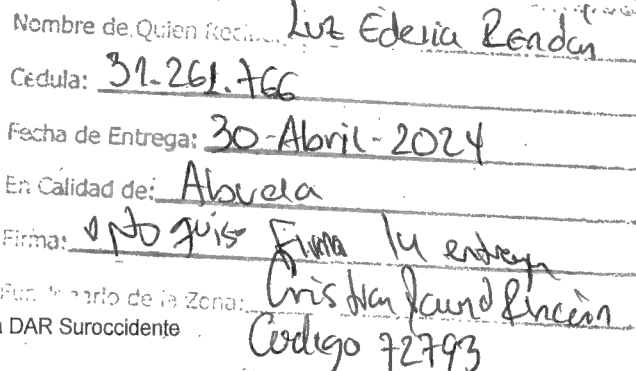 Nombre de Quien Recibe: Luz Ederia Rendon
Cedula: 31.261.766
Fecha de Entrega: 30-Abril-2024
En Calidad de: Abuela
Firma: No quis Firma la entrega
Funcionario de la Zona: Cristian Rincón
DAR Suroccidente Codigo 72793